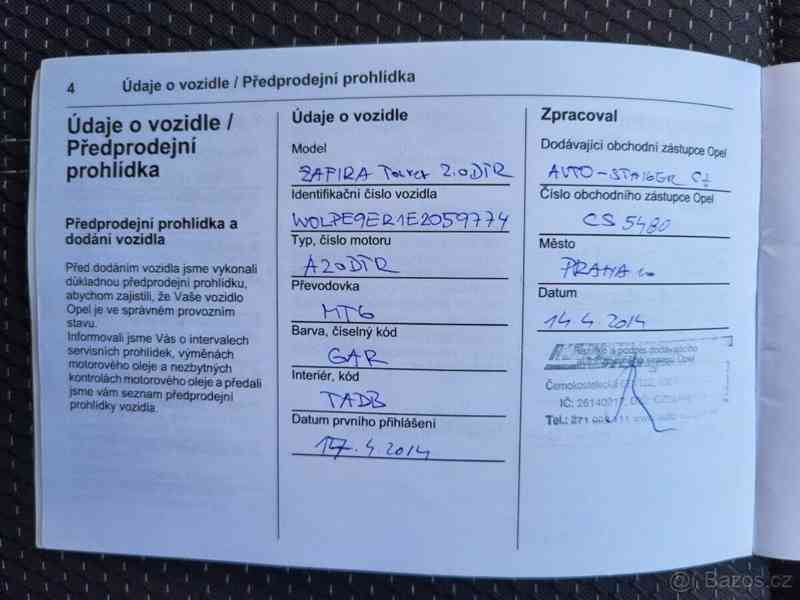 4 Údaje o vozidle / Předprodejní prohlídka
Údaje o vozidle /
Předprodejní
prohlídka
Předprodejní prohlídka a
dodání vozidla
Před dodáním vozidla jsme vykonali
důkladnou předprodejní prohlídku,
abychom zajistili, že Vaše vozidlo
Opel je ve správném provozním
stavu.
Informovali jsme Vás o intervalech
servisních prohlídek, výměnách
motorového oleje a nezbytných
kontrolách motorového oleje a předali
jsme vám seznam předprodejní
prohlídky vozidla.
Údaje o vozidle
Model
ZAFIRA Tourer 2.0DTR
Identifikační číslo vozidla
W0LPE9ER1E2059774
Typ, číslo motoru
A20DTR
Převodovka
MT6
Barva, číselný kód
GAR
Interiér, kód
TADB
Datum prvního přihlášení
17.4.2014
Zpracoval
Dodávající obchodní zástupce Opel
AUTO-STAIGER CZ
Číslo obchodního zástupce Opel
CS 5480
Město
PRAHA 10
Datum
14.4.2014
Razítko a podpis dodávajícího
Opel
Černokostelecká
IČ:
Tel.: 271
Bazos.cz